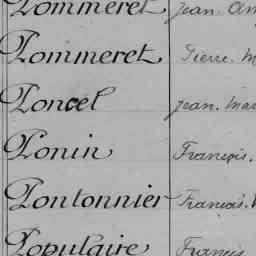 Pommeret Jean
Pommeret Pierre.
Poncel Jean. Mar
Ponin François.
Pontonnier François.
Populaire François